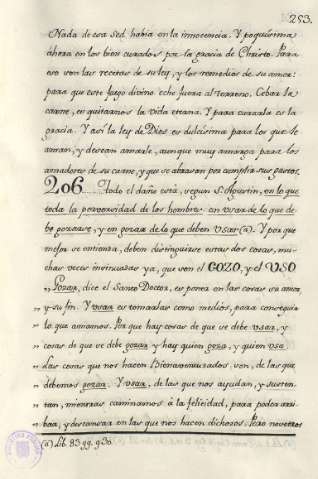 253.
Nada de esa Sed habia en la innocencia. Y poquissima
ahora en los bien curados por la gracia de Christo. Para
eso ven las recetas de su ley, y los remedios de su amor:
para que este fuego divino eche fuera al terreno. Cebar la
carne, en quitarnos la vida eterna. Y para curarla es la
gracia. Y así la ley de Dios es dulcisima para los que le
aman, y desean amarle, aunque muy amarga para los
amadores de su carne, y que se abrasan por cumplir sus gustos.
206. Todo el daño está, segun S. Agustin, en lo que
toda la perversidad de los hombres en usar de lo que de-
be gozarse, y en gozar de lo que deben usar (a). Y por que
mejor se entienda, deben distinguirse estas dos cosas, mu-
chas veces insinuadas ya, que ven el GOZO, y el USO
„ Gozar, dice el Santo Doctor, es poner en las cosas su amor
„ y su fin. Y usar es tomarlas como medios, para conseguir
„ lo que amamos. Por que hay cosas de que se debe usar, y
„ cosas de que se debe gozar y hay quien goza, y quien usa
„ Las cosas que nos hacen Bienaventurados son, de las que
„ debemos gozar. Y usar, de las que nos ayudan, y susten-
„ tan, mientras caminamos à la felicidad, para poder arri-
„ bar, y descansar en las que nos hacen dichosos. Pero nosotros
(a) Lib. 83 qq. q. 30.